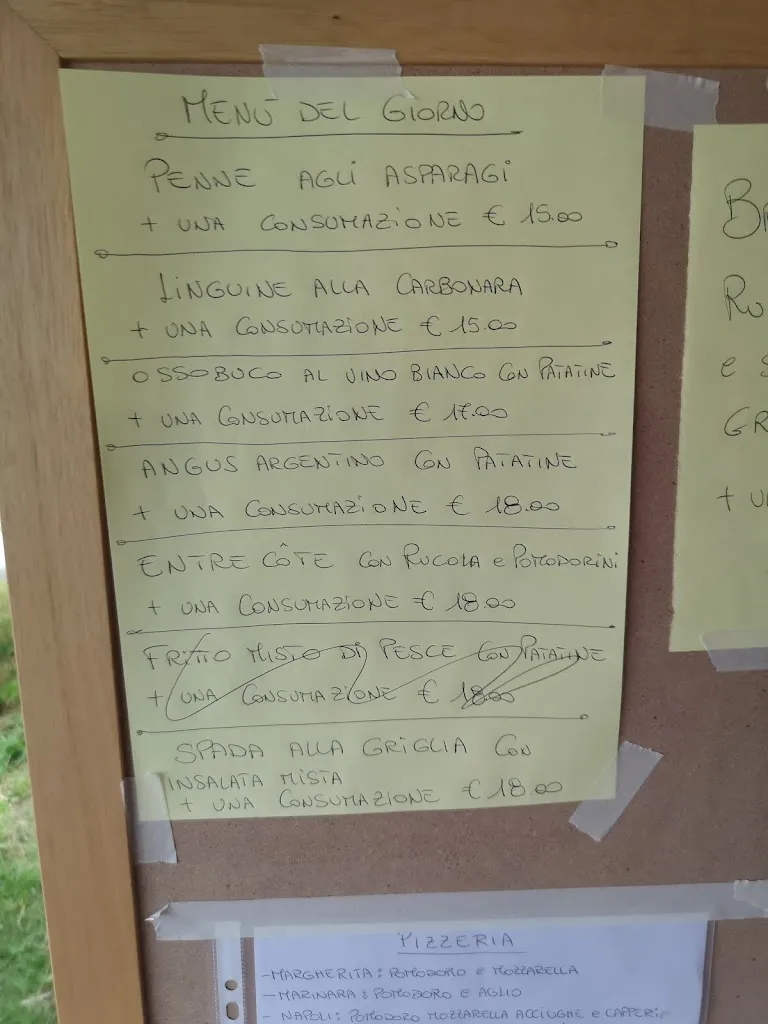 MENÙ DEL GIORNO
PENNE AGLI ASPARAGI
+ UNA CONSUMAZIONE € 15.00
LINGUINE ALLA CARBONARA
+ UNA CONSUMAZIONE € 15.00
OSSOBUCO AL VINO BIANCO CON PATATINE
+ UNA CONSUMAZIONE € 17.00
ANGUS ARGENTINO CON PATATINE
+ UNA CONSUMAZIONE € 18.00
ENTRE CÔTE CON RUCOLA e POMODORINI
+ UNA CONSUMAZIONE € 18.00
FRITTO MISTO DI PESCE CON PATATINE
+ UNA CONSUMAZIONE € 18.00
SPADA ALLA GRIGLIA CON
INSALATA MISTA
+ UNA CONSUMAZIONE € 18.00
PIZZERIA
- MARGHERITA: POMODORO e MOZZARELLA
- MARINARA: POMODORO e AGLIO
- NAPOLI: POMODORO MOZZARELLA ACCIUGHE e CAPPERI
e
GR
+